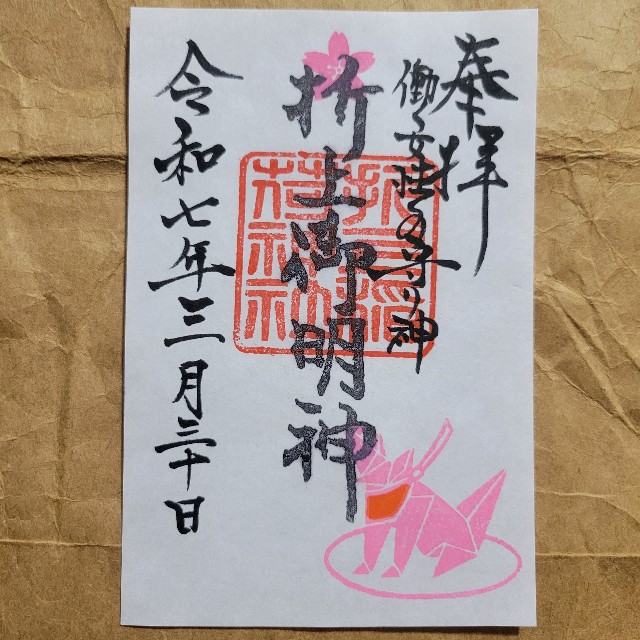 奉拝
働く女性の守り神
折上御明神
折上稲荷神社
令和七年三月三十日